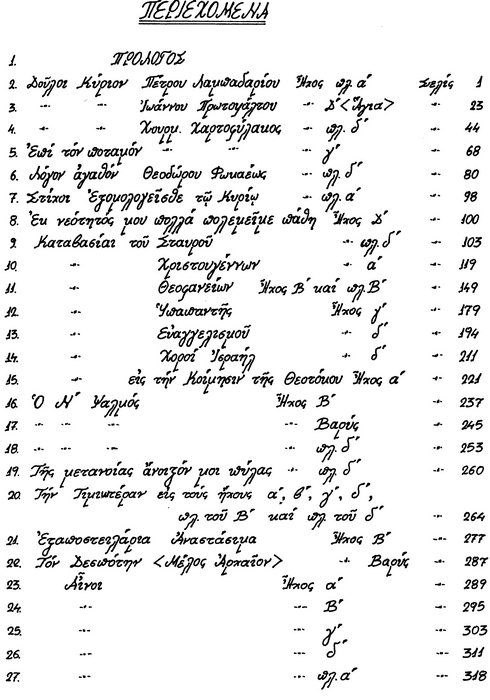 ΠΕΡΙΕΧΟΜΕΝΑ
1. ΠΡΟΛΟΓΟΣ
2. Δοῦλοι Κύριον Πέτρου Λαμπαδαρίου Ἦχος πλ. α΄ Σελίς 1
3. -"- -"- Ἰωάννου Πρωτοψάλτου -"- Δ΄ <Ἅγια> -"- 23
4. -"- -"- Χουρμ. Χαρτοφύλακος -"- πλ. δ΄ -"- 44
5. Ἐπί τόν ποταμόν -"- -"- γ΄ -"- 68
6. Λόγον ἀγαθόν Θεοδώρου Φωκαέως -"- πλ. δ΄ -"- 80
7. Στίχοι Ἐξομολογεῖσθε τῷ Κυρίῳ -"- πλ. α΄ -"- 98
8. Ἐκ νεότητός μου πολλά πολεμεῖ με πάθη Ἦχος Δ΄ -"- 100
9. Καταβασίαι τοῦ Σταυροῦ -"- πλ. δ΄ -"- 103
10. -"- Χριστουγέννων -"- α΄ -"- 119
11. -"- Θεοφανείων Ἦχος Β΄ καί πλ. Β΄ -"- 149
12. -"- Ὑπαπαντῆς Ἦχος γ΄ -"- 179
13. -"- Εὐαγγελισμοῦ -"- δ΄ -"- 194
14. -"- Χοροί Ἰσραήλ -"- δ΄ -"- 211
15. -"- εἰς τήν Κοίμησιν τῆς Θεοτόκου Ἦχος α΄ -"- 221
16. Ὁ Ν΄ Ψαλμός Ἦχος Β΄ -"- 237
17. -"- -"- -"- -"- Βαρύς -"- 245
18. -"- -"- -"- -"- πλ. δ΄ -"- 253
19. Τῆς μετανοίας ἄνοιξόν μοι πύλας -"- πλ. δ΄ -"- 260
20. Τήν Τιμιωτέραν εἰς τούς ἤχους α΄, β΄, γ΄, δ΄,
πλ. τοῦ Β΄ καί πλ. τοῦ δ΄ -"- 264
21. Ἐξαποστειλάρια Ἀναστάσιμα Ἦχος Β΄ -"- 277
22. Τόν Δεσπότην <Μέλος Ἀρχαῖον> -"- Βαρύς -"- 287
23. Αἶνοι Ἦχος α΄ -"- 289
24. -"- -"- Β΄ -"- 295
25. -"- -"- γ΄ -"- 303
26. -"- -"- δ΄ -"- 311
27. -"- -"- πλ. α΄ -"- 318